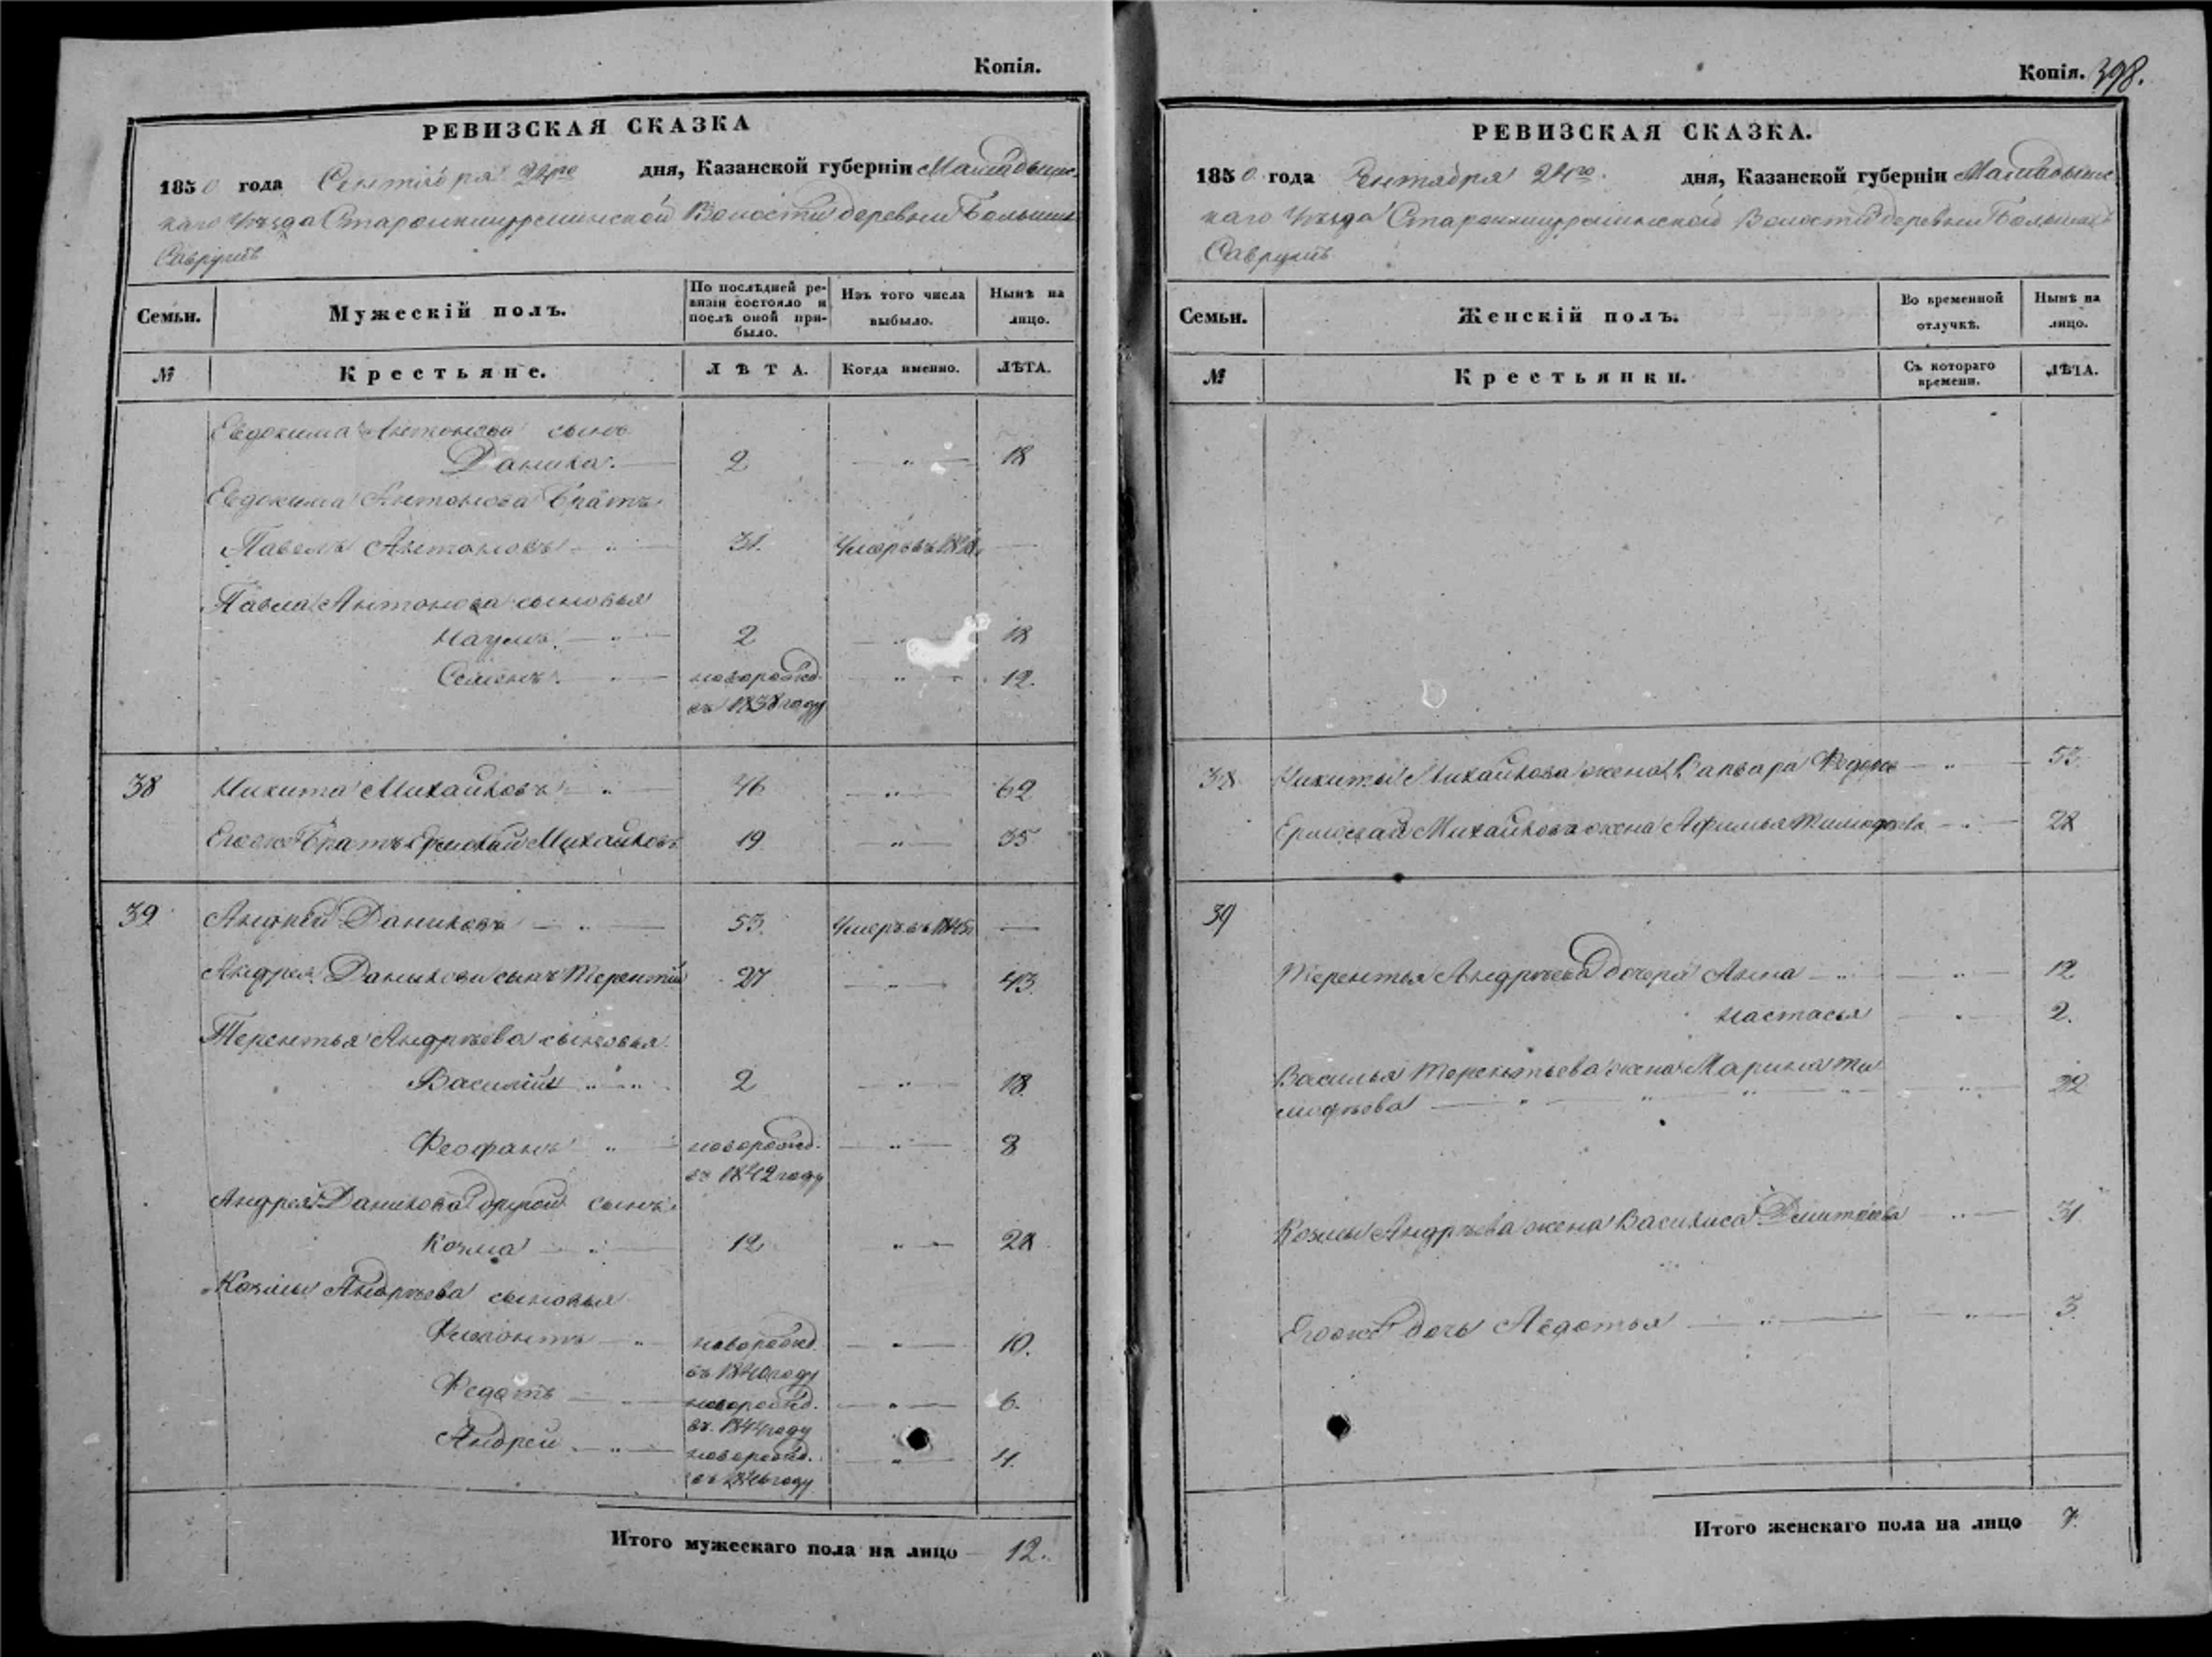 Копія.
РЕВИЗСКАЯ СКАЗКА
1850 года Сентября 24го дня, Казанской губерніи Мамадышс
каго Уѣзда Волости деревни Большихъ
Савруш
Семьи.
Мужескій полъ.
По послѣдней ре-
визіи состояло и
послѣ оной при-
было.
Изъ того числа
выбыло.
Нынѣ на
лицо.
№
Крестьяне.
ЛѢТА.
Когда именно.
ЛѢТА.
Евдокима Антонова сынъ
Данила. 2 — " — 18
Евдокима Антонова Братъ
Павелъ Антоновъ — " — 31. Умеръ въ —
Павла Антонова сыновья
Наумъ. — " — 2 — " — 18
Семенъ. — " — новорожд. — " — 12.
въ 1838 году
38 Никита Михайловъ — " — 46 — " — 62
Егоже Братъ Ермолай Михайловъ 19 — " — 35
39 Андрей Даниловъ — " — 53. Умеръ въ 1845 —
Андрея Данилова сынъ Терентій 27 — " — 43.
Терентья Андрѣева сыновья
Василій " — " 2 — " — 18.
Феофанъ " новорожд. — " — 8
въ 1842 году
Андрея Данилова другой сынъ
Козма — " — 12 " — 28
Козмы Андрѣева сыновья
Филионтъ — " новорожд. — " — 10.
въ 1840 году
Федотъ — " — новорожд. — " — 6.
въ 1844 году
Андрей — " — новорожд. — " — 4.
въ 1846 году
Итого мужескаго пола на лицо 12.
Копія. 398.
РЕВИЗСКАЯ СКАЗКА.
1850 года Сентября 24го дня, Казанской губерніи Мамадышс
каго Уѣзда Волости деревни Большихъ
Савруш
Семьи.
Женскій полъ.
Во временной
отлучкѣ.
Нынѣ на
лицо.
№
Крестьянки.
Съ котораго
времени.
ЛѢТА.
38 Никиты Михайлова жена Варвара Федоро — " — 53.
Ермолая Михайлова жена Афимья Тимофеева — " — 28
39
Терентья Андрѣева дочери Анна — " — " — 12
Настасья — " — 2.
Василья Терентьева жена Марина Ти
мофѣева — " — " — " — " — " — 22
Козмы Андрѣева жена Василиса Дмитріева — " — 31
Егоже дочь Авдотья — " — " — 3.
Итого женскаго пола на лицо 7.